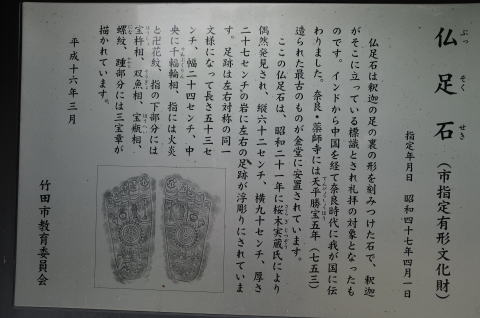 仏足石（市指定有形文化財）
ぶっ そく せき
指定年月日 昭和四十七年四月一日
仏足石は釈迦の足の裏の形を刻みつけた石で、釈迦
がそこに立っている標識とされ礼拝の対象となったも
のです。インドから中国を経て奈良時代に我が国に伝
わりました。奈良・薬師寺には天平勝宝五年（七五三）
造られた最古のものが金堂に安置されています。
ここの仏足石は、昭和二十一年に桜木実蔵氏により
偶然発見され、縦六十二センチ、横九十センチ、厚さ
二十七センチの岩に左右の足跡が浮彫りにされていま
す。足跡は左右対称の同一
文様になって長さ五十三セ
ンチ、幅二十四センチ、中
央に千輻輪相、指には火炎
と卍花紋、指の下部分には
宝杵相、双魚相、宝瓶相、
螺紋、踵部分には三宝章が
描かれています。
平成十六年三月
竹田市教育委員会